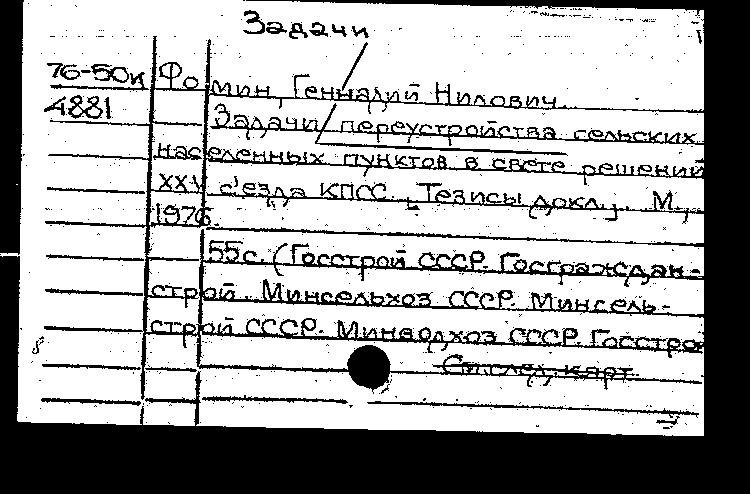 Задачи
76-50к Фомин, Геннадий Нилович.
4881 Задачи переустройства сельских
населенных пунктов в свете решений
XXV с'езда КПСС. [Тезисы докл.]. М.,
1976.
55с. (Госстрой СССР. Госграждан-
строй. Минсельхоз СССР. Минсель-
строй СССР. Минводхоз СССР. Госстрой
См. след. карт.